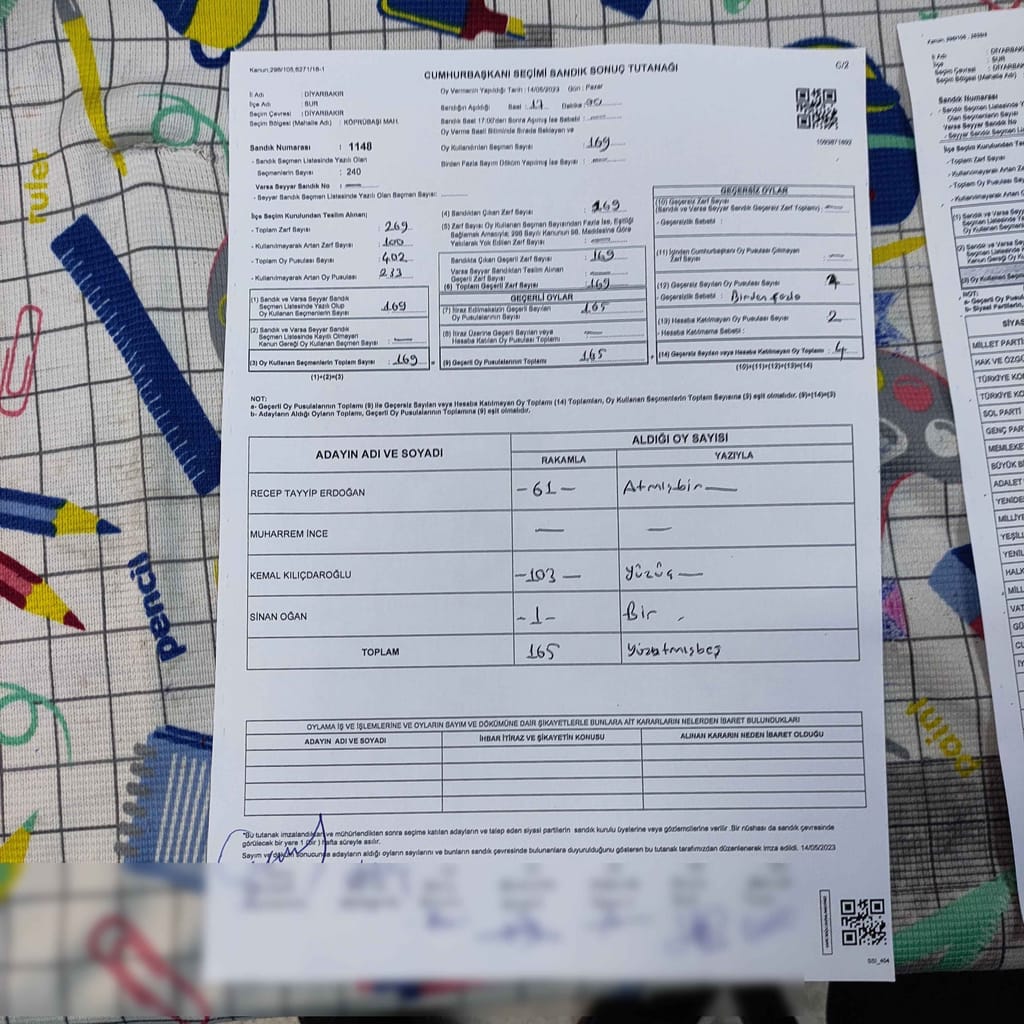 Kanun:298/105,6271/18-1
CUMHURBAŞKANI SEÇİMİ SANDIK SONUÇ TUTANAĞI
C/2
İl Adı : DİYARBAKIR
İlçe Adı : SUR
Seçim Çevresi : DİYARBAKIR
Seçim Bölgesi (Mahalle Adı) : KÖPRÜBAŞI MAH.
Oy Vermenin Yapıldığı Tarih : 14/05/2023 Gün : Pazar
Sandığın Açıldığı Saat : 17 Dakika : 00
Sandık Saat 17:00'den Sonra Açılmış İse Sebebi :
Oy Verme Saati Bitiminde Sırada Bekleyen ve
Oy Kullandırılan Seçmen Sayısı : 169
Birden Fazla Sayım Döküm Yapılmış İse Sayısı :
Sandık Numarası : 1148
- Sandık Seçmen Listesinde Yazılı Olan
Seçmenlerin Sayısı : 240
Varsa Seyyar Sandık No :
- Seyyar Sandık Seçmen Listesinde Yazılı Olan Seçmen Sayısı:
İlçe Seçim Kurulundan Teslim Alınan;
- Toplam Zarf Sayısı : 269
- Kullanılmayarak Artan Zarf Sayısı : 100
- Toplam Oy Pusulası Sayısı : 402
- Kullanılmayarak Artan Oy Pusulası : 233
(1) Sandık ve Varsa Seyyar Sandık
Seçmen Listesinde Yazılı Olup
Oy Kullanan Seçmenlerin Sayısı : 169
(2) Sandık ve Varsa Seyyar Sandık
Seçmen Listesinde Kaydı Olmayan
Kanun Gereği Oy Kullanan Seçmen Sayısı :
(3) Oy Kullanan Seçmenlerin Toplam Sayısı : 169
(1)+(2)=(3)
(4) Sandıktan Çıkan Zarf Sayısı : 169
(5) Zarf Sayısı Oy Kullanan Seçmen Sayısından Fazla İse, Eşitliği
Sağlamak Amacıyla; 298 Sayılı Kanunun 98. Maddesine Göre
Yakılarak Yok Edilen Zarf Sayısı :
Sandıkta Çıkan Geçerli Zarf Sayısı : 169
Varsa Seyyar Sandıktan Teslim Alınan
Geçerli Zarf Sayısı :
(6) Toplam Geçerli Zarf Sayısı : 169
GEÇERLİ OYLAR
(7) İtiraz Edilmeksizin Geçerli Sayılan
Oy Pusulalarının Sayısı : 165
(8) İtiraz Üzerine Geçerli Sayılan veya
Hesaba Katılan Oy Pusulası Toplamı :
(9) Geçerli Oy Pusulalarının Toplamı : 165
GEÇERSİZ OYLAR
(10) Geçersiz Zarf Sayısı
(Sandık ve Varsa Seyyar Sandık Geçersiz Zarf Toplamı) :
- Geçersizlik Sebebi :
(11) İçinden Cumhurbaşkanı Oy Pusulası Çıkmayan
Zarf Sayısı :
(12) Geçersiz Sayılan Oy Pusulası Sayısı :
- Geçersizlik Sebebi : Birden fazla
(13) Hesaba Katılmayan Oy Pusulası Sayısı : 2
- Hesaba Katılmama Sebebi :
(14) Geçersiz Sayılan veya Hesaba Katılmayan Oy Toplamı : 4
(10)+(11)+(12)+(13)=(14)
NOT:
a- Geçerli Oy Pusulalarının Toplamı (9) ile Geçersiz Sayılan veya Hesaba Katılmayan Oy Toplamı (14) Toplamları, Oy Kullanan Seçmenlerin Toplam Sayısına (3) eşit olmalıdır. (9)+(14)=(3)
b- Adayların Aldığı Oyların Toplamı, Geçerli Oy Pusulalarının Toplamına (9) eşit olmalıdır.
ADAYIN ADI VE SOYADI
ALDIĞI OY SAYISI
RAKAMLA YAZIYLA
RECEP TAYYİP ERDOĞAN -61- Atmışbir
MUHARREM İNCE — —
KEMAL KILIÇDAROĞLU -103- Yüzüç
SİNAN OĞAN -1- Bir
TOPLAM 165 Yüzatmışbeş
OYLAMA İŞ VE İŞLEMLERİNE VE OYLARIN SAYIM VE DÖKÜMÜNE DAİR ŞİKAYETLERLE BUNLARA AİT KARARLARIN NELERDEN İBARET BULUNDUKLARI
ADAYIN ADI VE SOYADI İHBAR İTİRAZ VE ŞİKAYETİN KONUSU ALINAN KARARIN NEDEN İBARET OLDUĞU
*Bu tutanak imzalandıktan ve mühürlendikten sonra seçime katılan adayların ve talep eden siyasi partilerin sandık kurulu üyelerine veya gözlemcilerine verilir. Bir nüshası da sandık çevresinde
görülecek bir yere 1 (bir) hafta süreyle asılır.
Sayım ve döküm sonucunda adayların aldığı oyların sayılarını ve bunların sandık çevresinde bulunanlara duyurulduğunu gösteren bu tutanak tarafımızdan düzenlenerek imza edildi. 14/05/2023
ruler
pencil
paint
Sandık Numarası
MİLLET PARTİ
HAK VE ÖZG
TÜRKİYE KO
TÜRKİYE KO
SOL PARTİ
GENÇ PAR
MEMLEKE
BÜYÜK B
ADALET
YENİDE
MİLLİYE
YEŞİL
YENİL
HALK
MİLL
VAT